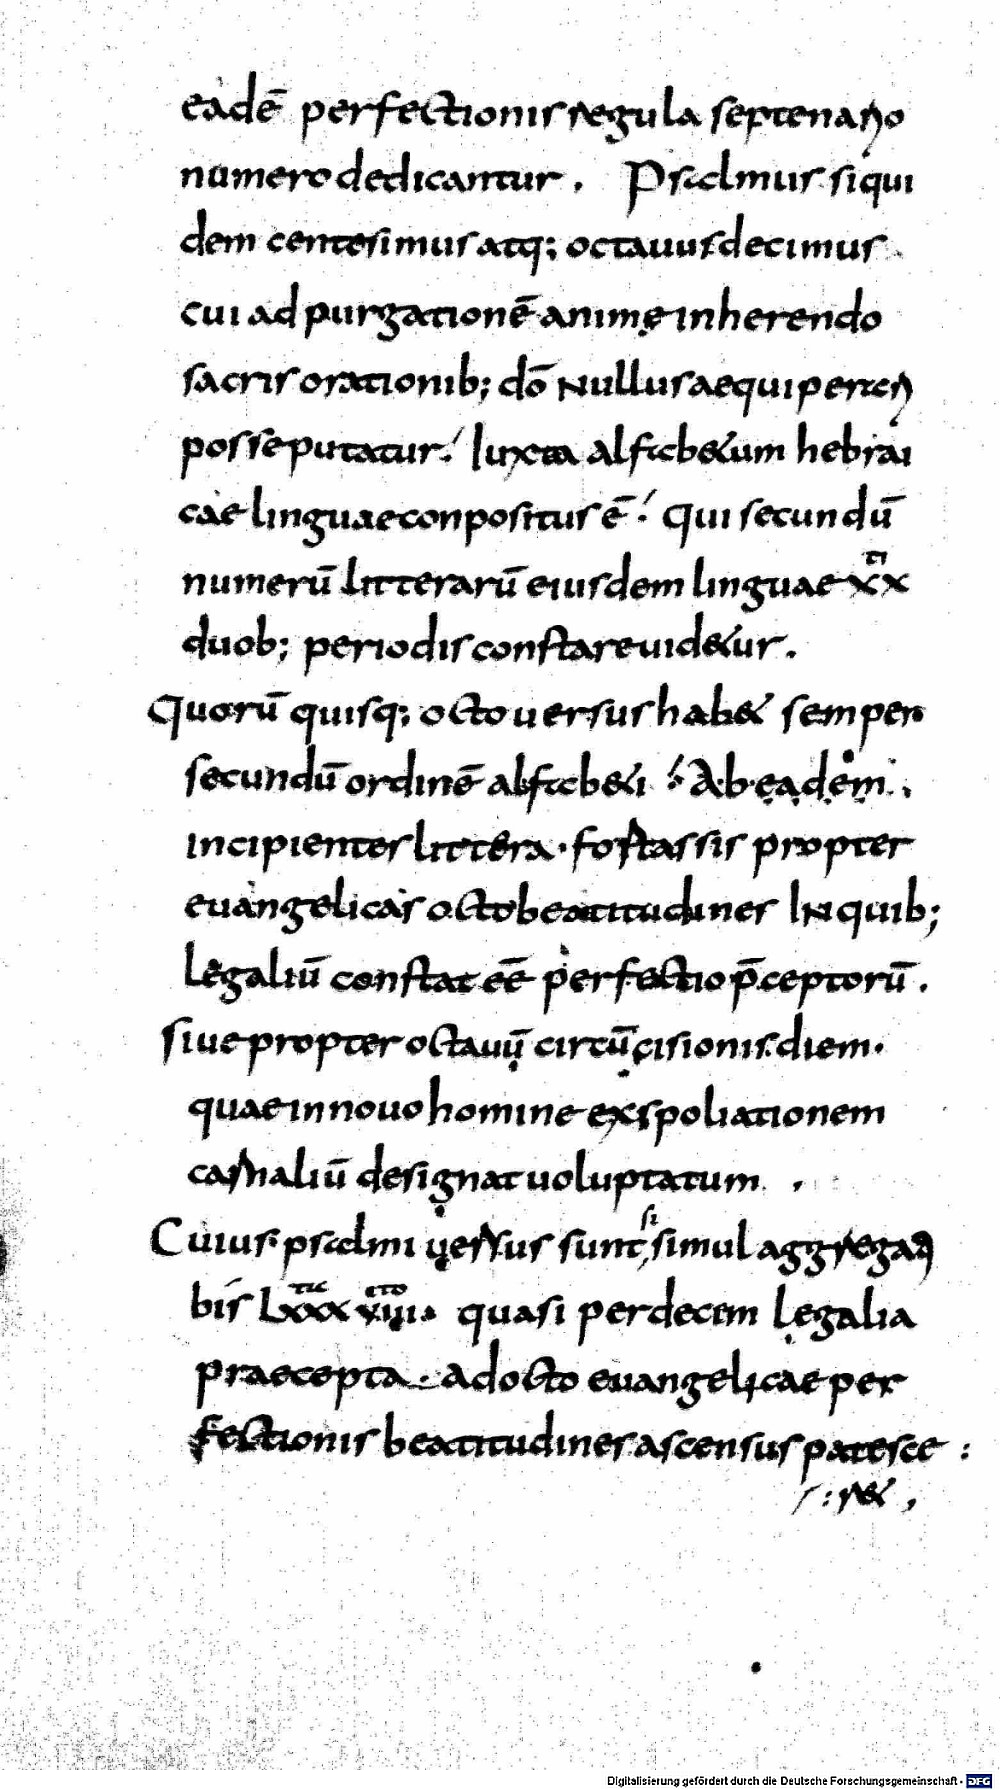 eadē perfectionis regula septenario
numero dedicantur . Psalmus siqui
dem centesimus atq; octauusdecimus
cui ad purgationē animę inherendo
sacris orationib; dō Nullus aequiperari
posse putatur ./ Iuxta alfabetum hebrai
cae linguae conpositus ē ./ Qui secundū
numerū litterarū eiusdem linguae xx^ti
duob; periodis constare uidetur .
Quorū quisq; octo uersus habet semper
secundū ordinē alfabeti ./ Ab eadem
incipientes littera . fortassis propter
euangelicas octo beatitudines In quib;
legaliū constat eē perfectio p̄ceptorū .
siue propter octauū circūcisionis diem .
quae in nouo homine exspoliationem
carnaliū designat uoluptatum .
Cuius psalmi uersus sunt si simul aggregati
bis Lxxx^ta xiiii . quasi per decem legalia
praecepta . ad octo euangelicae per
fectionis beatitudines ascensus patesce :
/: ret ,
Digitalisierung gefördert durch die Deutsche Forschungsgemeinschaft - DFG